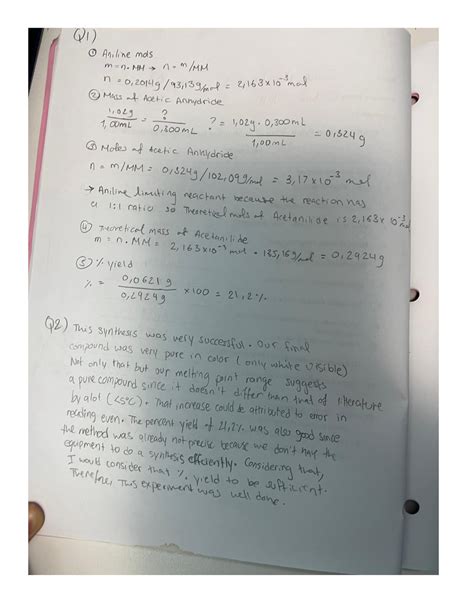 Q1)
① Aniline mols
m = n · MM → n = m/MM
n = 0,2014g / 93,13g/mol = 2,163 x 10⁻³ mol
② Mass of Acetic Anhydride
1,02g / 1,00mL = ? / 0,300mL   ? = 1,02g · 0,300mL / 1,00mL = 0,324g
③ Moles of Acetic Anhydride
n = m/MM = 0,324g / 102,09g/mol = 3,17 x 10⁻³ mol
→ Aniline limiting reactant because the reaction has
a 1:1 ratio so Theoretical mols of Acetanilide is 2,163 x 10⁻³ mol
④ Theoretical mass of Acetanilide
m = n · MM = 2,163 x 10⁻³ mol · 135,16g/mol = 0,2924g
⑤ % yield
% = 0,0621g / 0,2924g x 100 = 21,2%
Q2) This synthesis was very successful. Our final
compound was very pure in color (only white visible)
Not only that but our melting point range suggests
a pure compound since it doesn't differ than that of literature
by alot (<5°C). That increase could be attributed to error in
reading even. The percent yield of 21,2% was also good since
the method was already not precise because we don't have the
equipment to do a synthesis efficiently. Considering that,
I would consider that % yield to be sufficient.
Therefore, this experiment was well done.